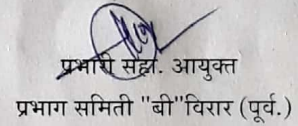 प्रभारी सहा. आयुक्त
प्रभाग समिती "बी"विरार (पूर्व.)